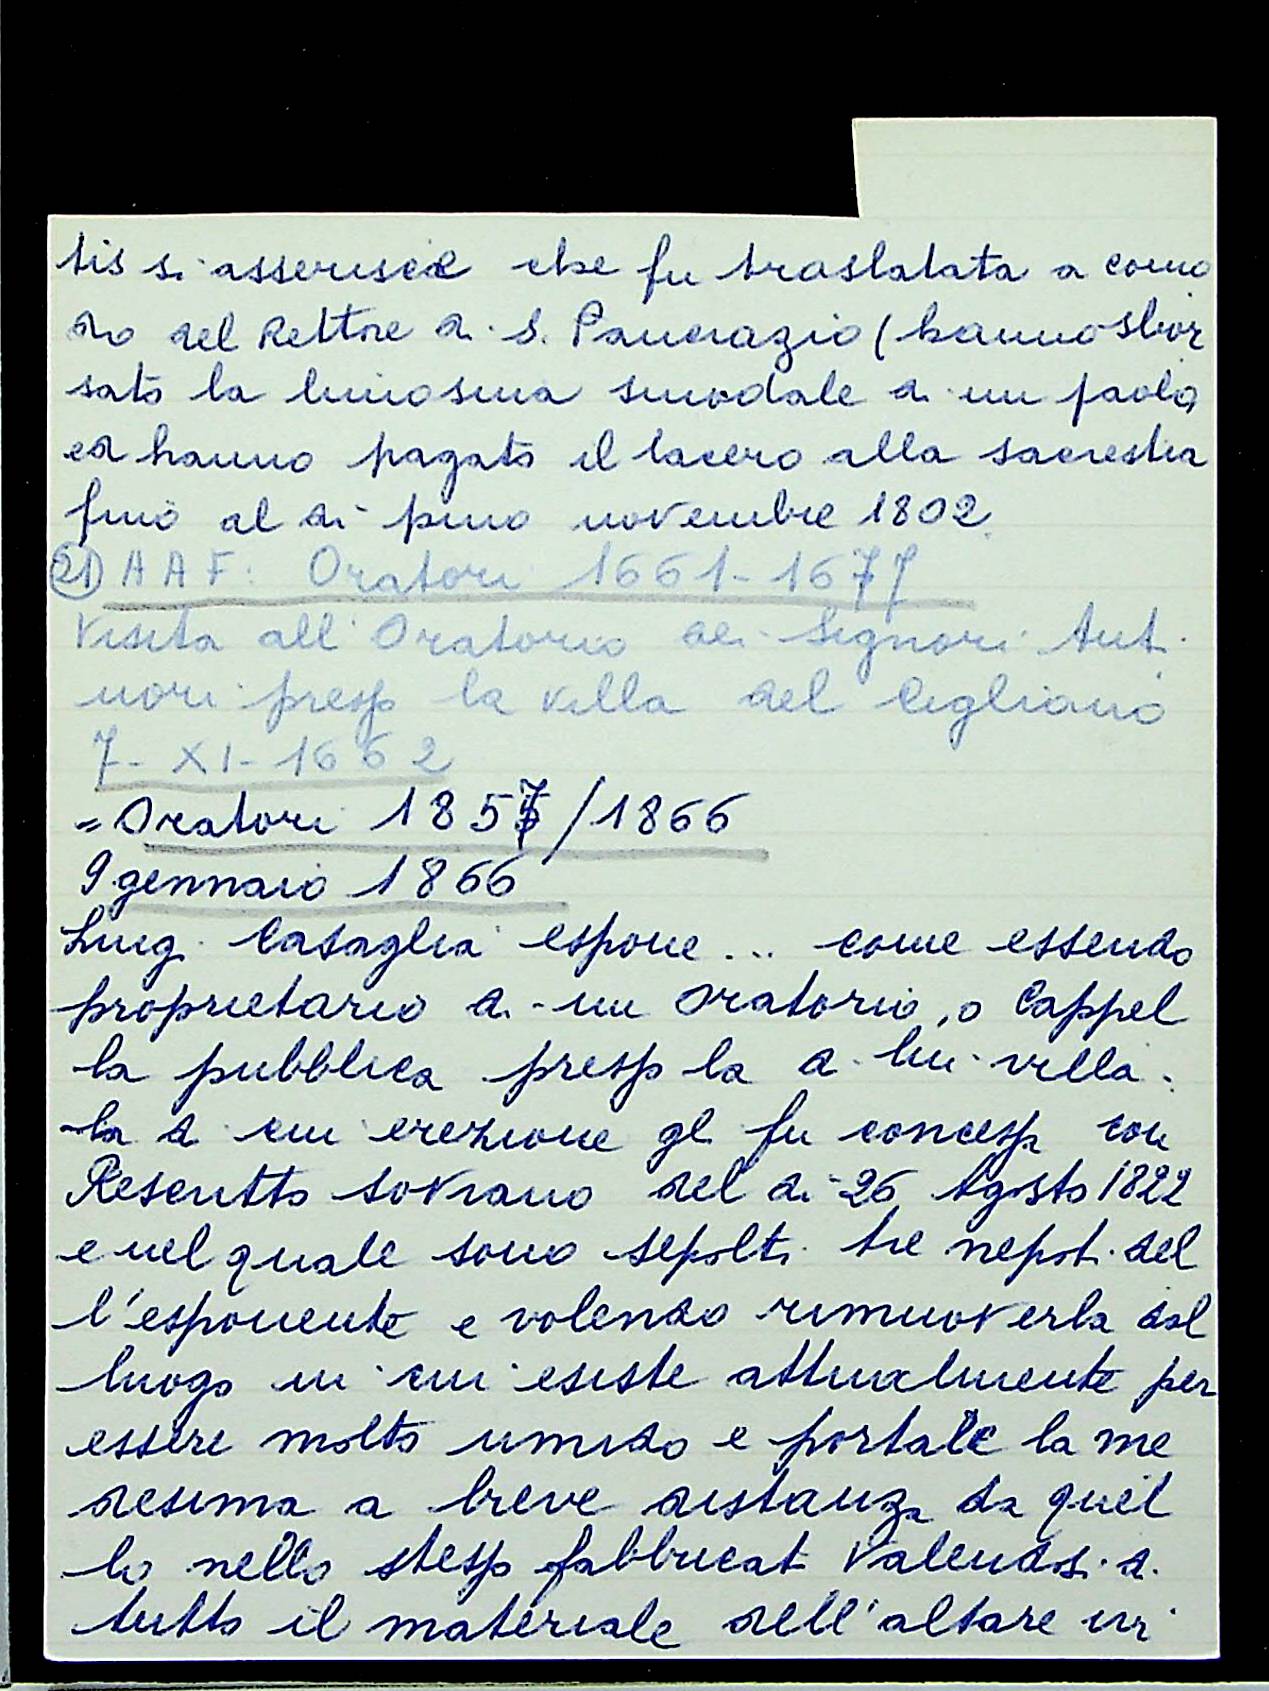 tis si asserisce che fu traslatata a como
do del Rettore di S. Pancrazio (hanno sbor
sato la limosina sinodale di un paolo
ed hanno pagato il lacero alla sacrestia
fino al dì primo novembre 1802.
21) A A F: Oratori 1661-1677
Visita all'Oratorio dei Signori Anti
nori presso la villa del Cigliano
7-XI-1662
= Oratori 1857/1866
9 gennaio 1866
Luigi Casaglia espone... come essendo
proprietario di un Oratorio, o Cappel
la pubblica presso la di lui villa.
la di cui erezione gli fu concessa con
Rescritto sovrano del dì 26 Agosto 1822
e nel quale sono sepolti tre nepoti del
l'esponente e volendo rimuoverla dal
luogo in cui esiste attualmente per
essere molto umido e portare la me
desima a breve distanza da quel
lo nello stesso fabbricato Valendosi di
tutto il materiale dell'altare ivi